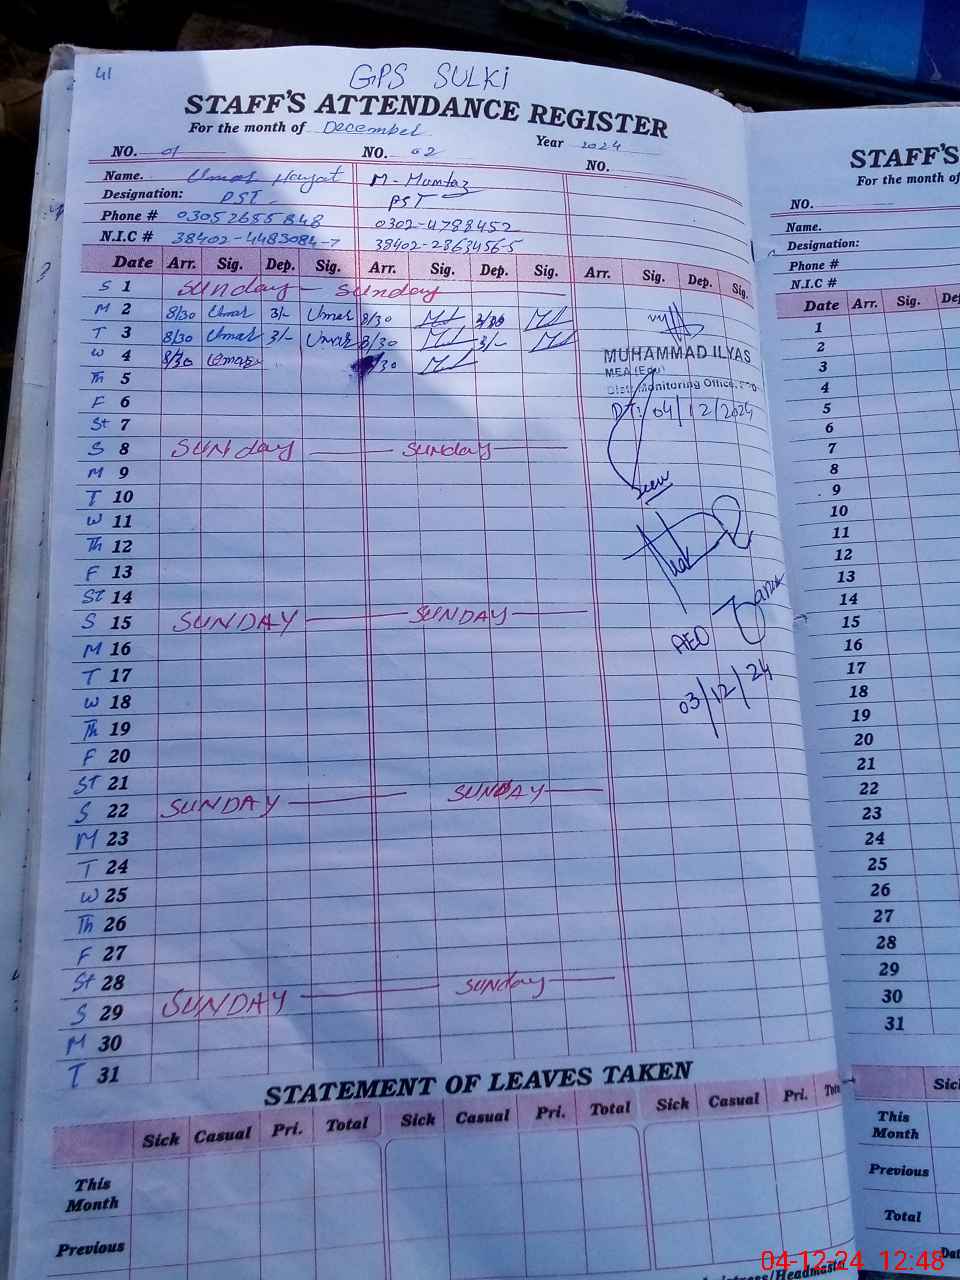 41
GPS SULKi
STAFF'S ATTENDANCE REGISTER
For the month of December
Year 2024
NO. 01 NO. 02 NO.
Name. Umar Hayat M-Mumtaz
Designation: PST PST
Phone # 03052655848 0302-4788452
N.I.C # 38402-4483084-7 38402-2863456-5
Date Arr. Sig. Dep. Sig. Arr. Sig. Dep. Sig. Arr. Sig. Dep. Sig.
S 1 Sunday - Sunday
M 2 8/30 Umar 3/- Umar 8/30
T 3 8/30 Umar 3/- Umar 8/30 3/-
W 4 8/30 Umar 8/30
Th 5
F 6
St 7
S 8 SUNday sunday
M 9
T 10
W 11
Th 12
F 13
St 14
S 15 SUNDAY SUNDAY
M 16
T 17
W 18
Th 19
F 20
St 21
S 22 SUNDAY SUNDAY
M 23
T 24
W 25
Th 26
F 27
St 28
S 29 SUNDAY sunday
M 30
T 31
MUHAMMAD ILYAS
MEA (Edu)
Distt: Monitoring Office,
DT: 04/12/2024
Seen
AEO
03/12/24
STATEMENT OF LEAVES TAKEN
Sick Casual Pri. Total Sick Casual Pri. Total Sick Casual Pri.
This
Month
Previous
STAFF'S
For the month of
NO.
Name.
Designation:
Phone #
N.I.C #
Date Arr. Sig.
1
2
3
4
5
6
7
8
9
10
11
12
13
14
15
16
17
18
19
20
21
22
23
24
25
26
27
28
29
30
31
This
Month
Previous
Total
04-12-24 12:48